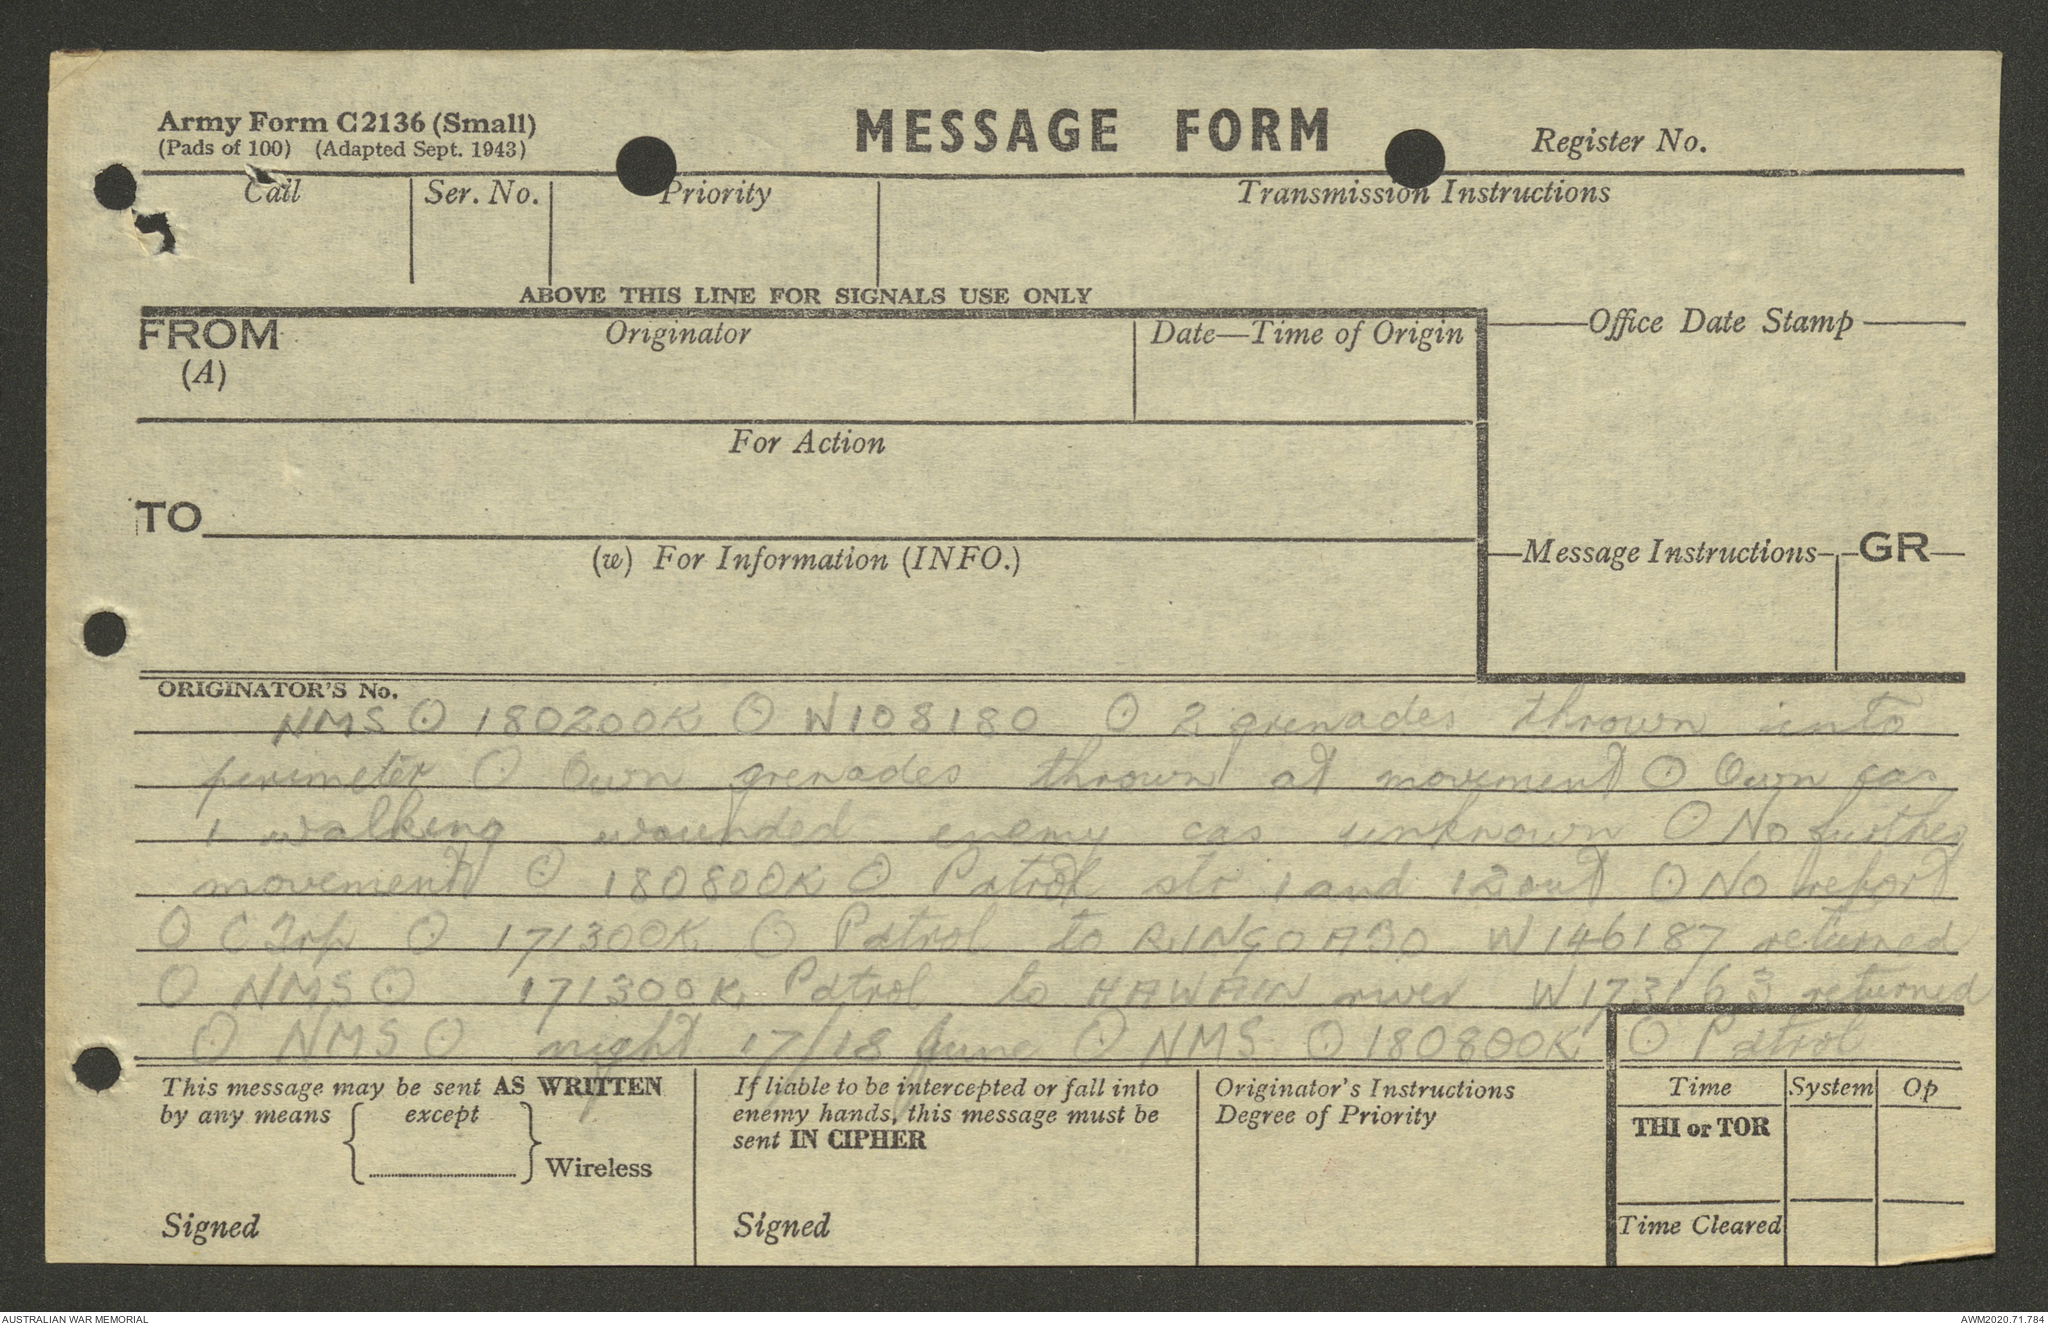 Army Form C2136 (Small)
(Pads of 100) (Adapted Sept. 1943)
MESSAGE FORM
Register No.
Call Ser. No. Priority Transmission Instructions
ABOVE THIS LINE FOR SIGNALS USE ONLY
FROM Originator Date—Time of Origin Office Date Stamp
(A)
For Action
TO
(w) For Information (INFO.)
Message Instructions GR
ORIGINATOR'S No.
NMS ⊙ 180200K ⊙ W108180 ⊙ 2 grenades thrown into
perimeter ⊙ Own grenades thrown at movement ⊙ Own cas
1 walking wounded enemy cas unknown ⊙ No further
movement ⊙ 180800K ⊙ Patrol str 1 and 12 out ⊙ No report
⊙ C Trp ⊙ 171300K ⊙ Patrol to RINGOABO W146187 returned
⊙ NMS ⊙ 171300K Patrol to HAWAIN river W173163 returned
⊙ NMS ⊙ night 17/18 June ⊙ NMS ⊙ 180800K ⊙ Patrol
This message may be sent AS WRITTEN
by any means { except } Wireless
Signed
If liable to be intercepted or fall into
enemy hands, this message must be
sent IN CIPHER
Signed
Originator's Instructions
Degree of Priority
Time System Op
THI or TOR
Time Cleared
AUSTRALIAN WAR MEMORIAL
AWM2020.71.784